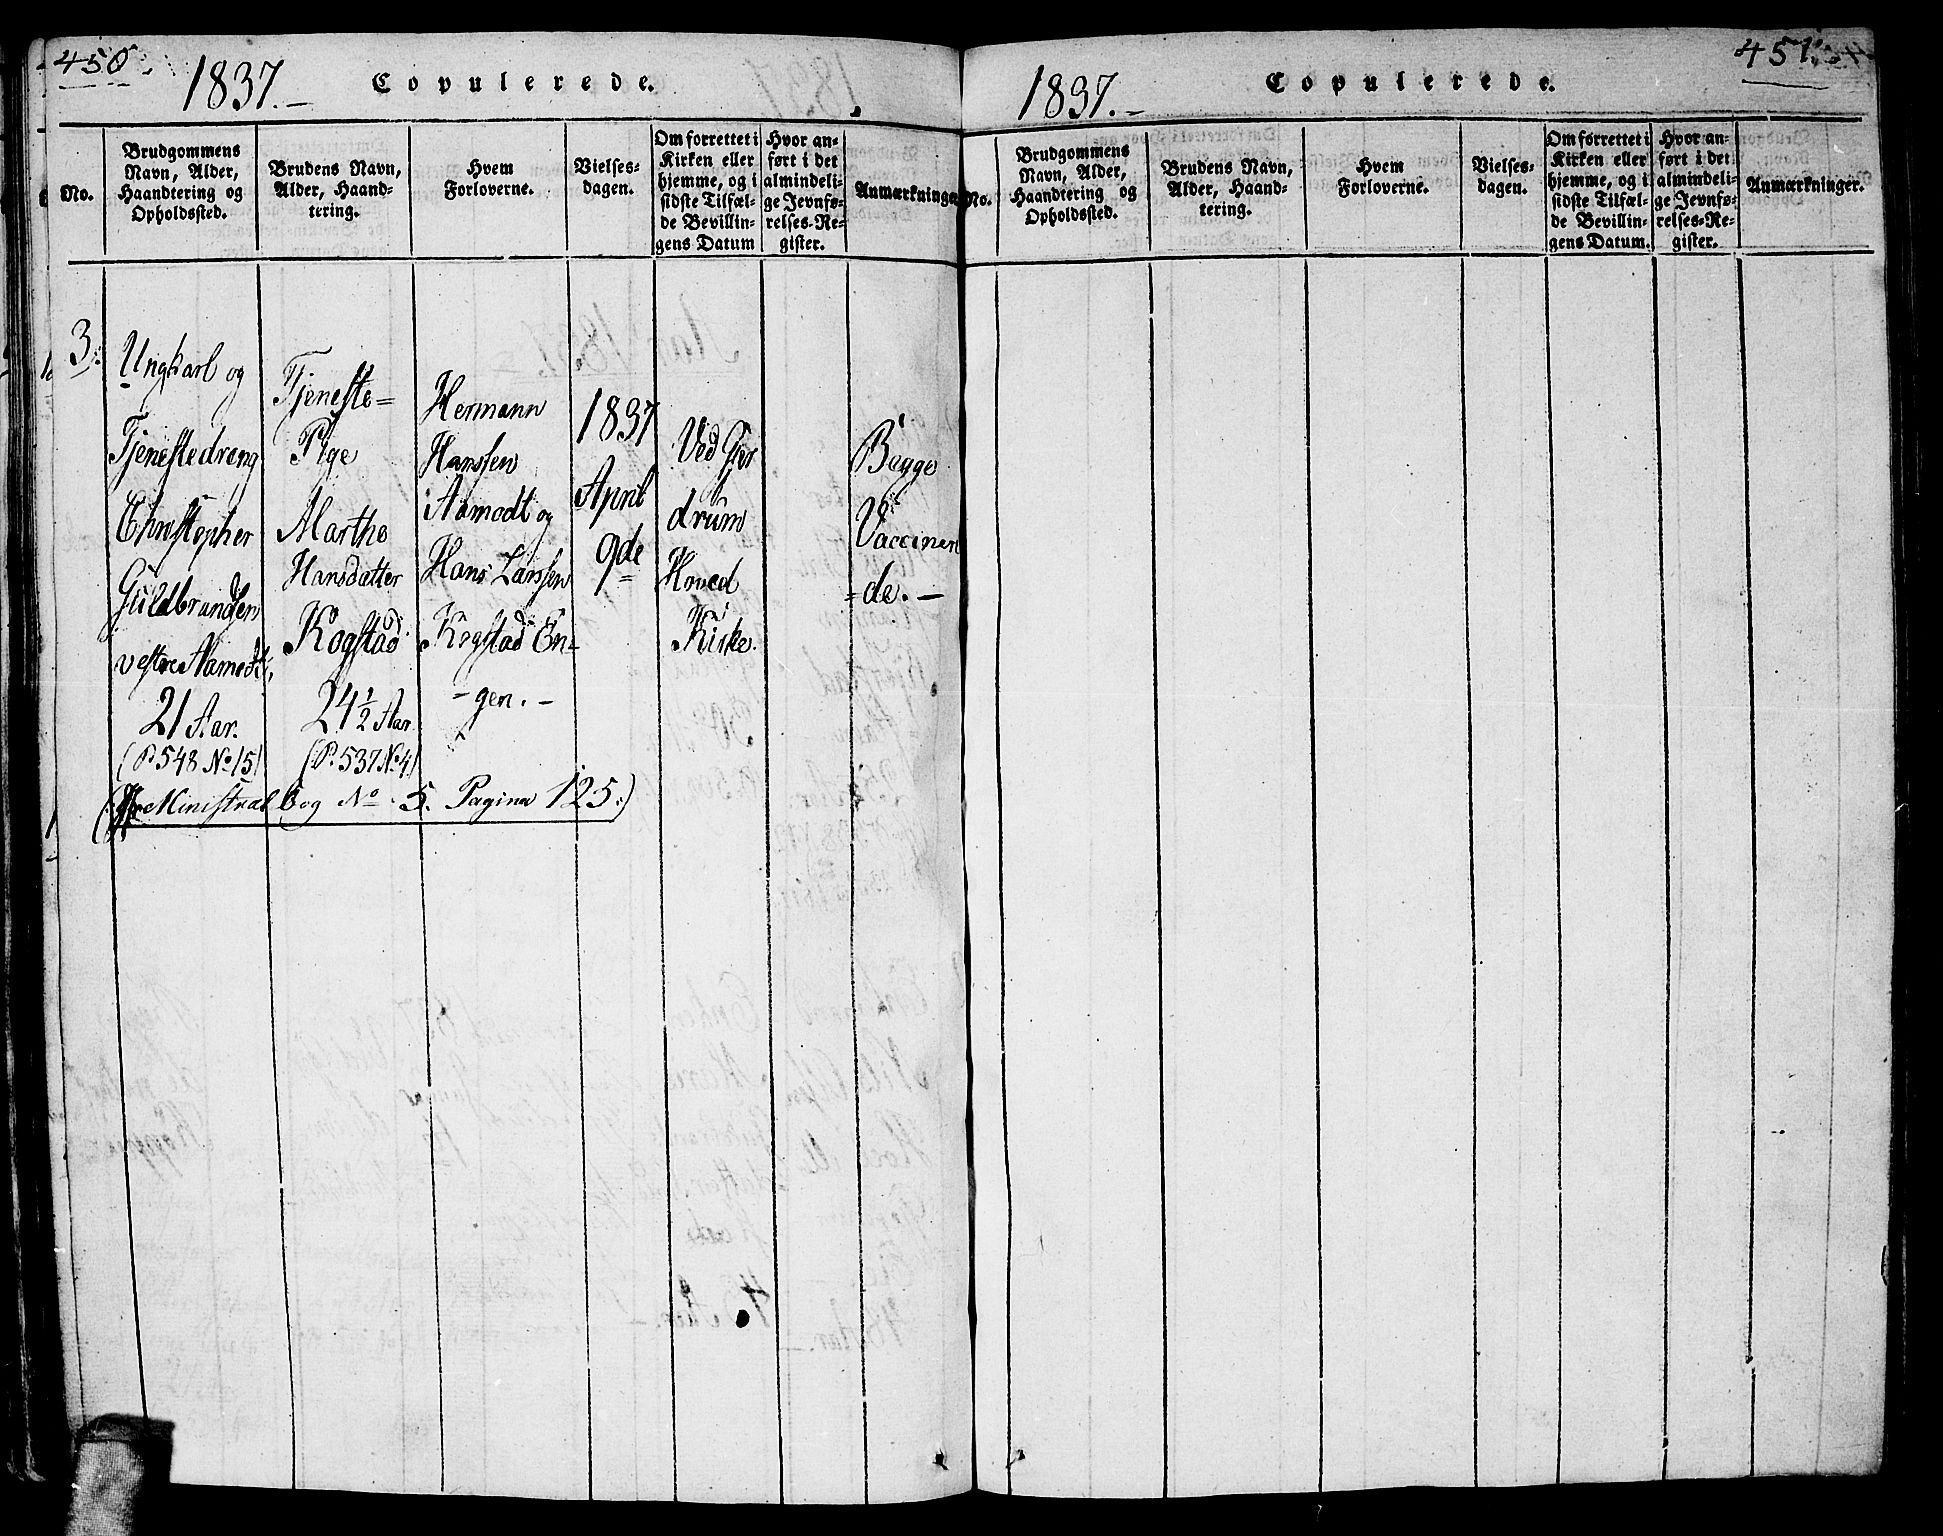 450.
1837.-
Copulerede.
No.
Brudgommens
Navn, Alder,
Haandtering og
Opholdssted.
Brudens Navn,
Alder, Haand-
tering.
Hvem
Forloverne.
Vielses-
dagen.
Om forrettet i
Kirken eller
hjemme, og i
sidste Tilfæl-
de Bevillin-
gens Datum
Hvor an-
ført i det
almindeli-
ge Jevnfø-
relses-Re-
gister.
Anmærkninger
3.
Ungkarl og
Tjenestedreng
Christopher
Guldbrandsen
vestre Aamodt,
21 Aar.
(P. 548 No 15)
Tjeneste=
Pige
Marthe
Hansdatter
Kogstad
24 1/2 Aar
(P. 537 No 4)
Hermann
Hanssen
i Aamodt og
Hans Larssen
Kogstad En-
-gen.-
1837
April
9de
Ved Gjer
drum
Hoved
Kirke.
Begge
Vaccinere
=de.-
Ministralbog No 5. Pagina 125.)
451.
1837.-
Copulerede.
No.
Brudgommens
Navn, Alder,
Haandtering og
Opholdssted.
Brudens Navn,
Alder, Haand-
tering.
Hvem
Forloverne.
Vielses-
dagen.
Om forrettet i
Kirken eller
hjemme, og i
sidste Tilfæl-
de Bevillin-
gens Datum.
Hvor an-
ført i det
almindeli-
ge Jevnfø-
relses-Re-
gister.
Anmærkninger.